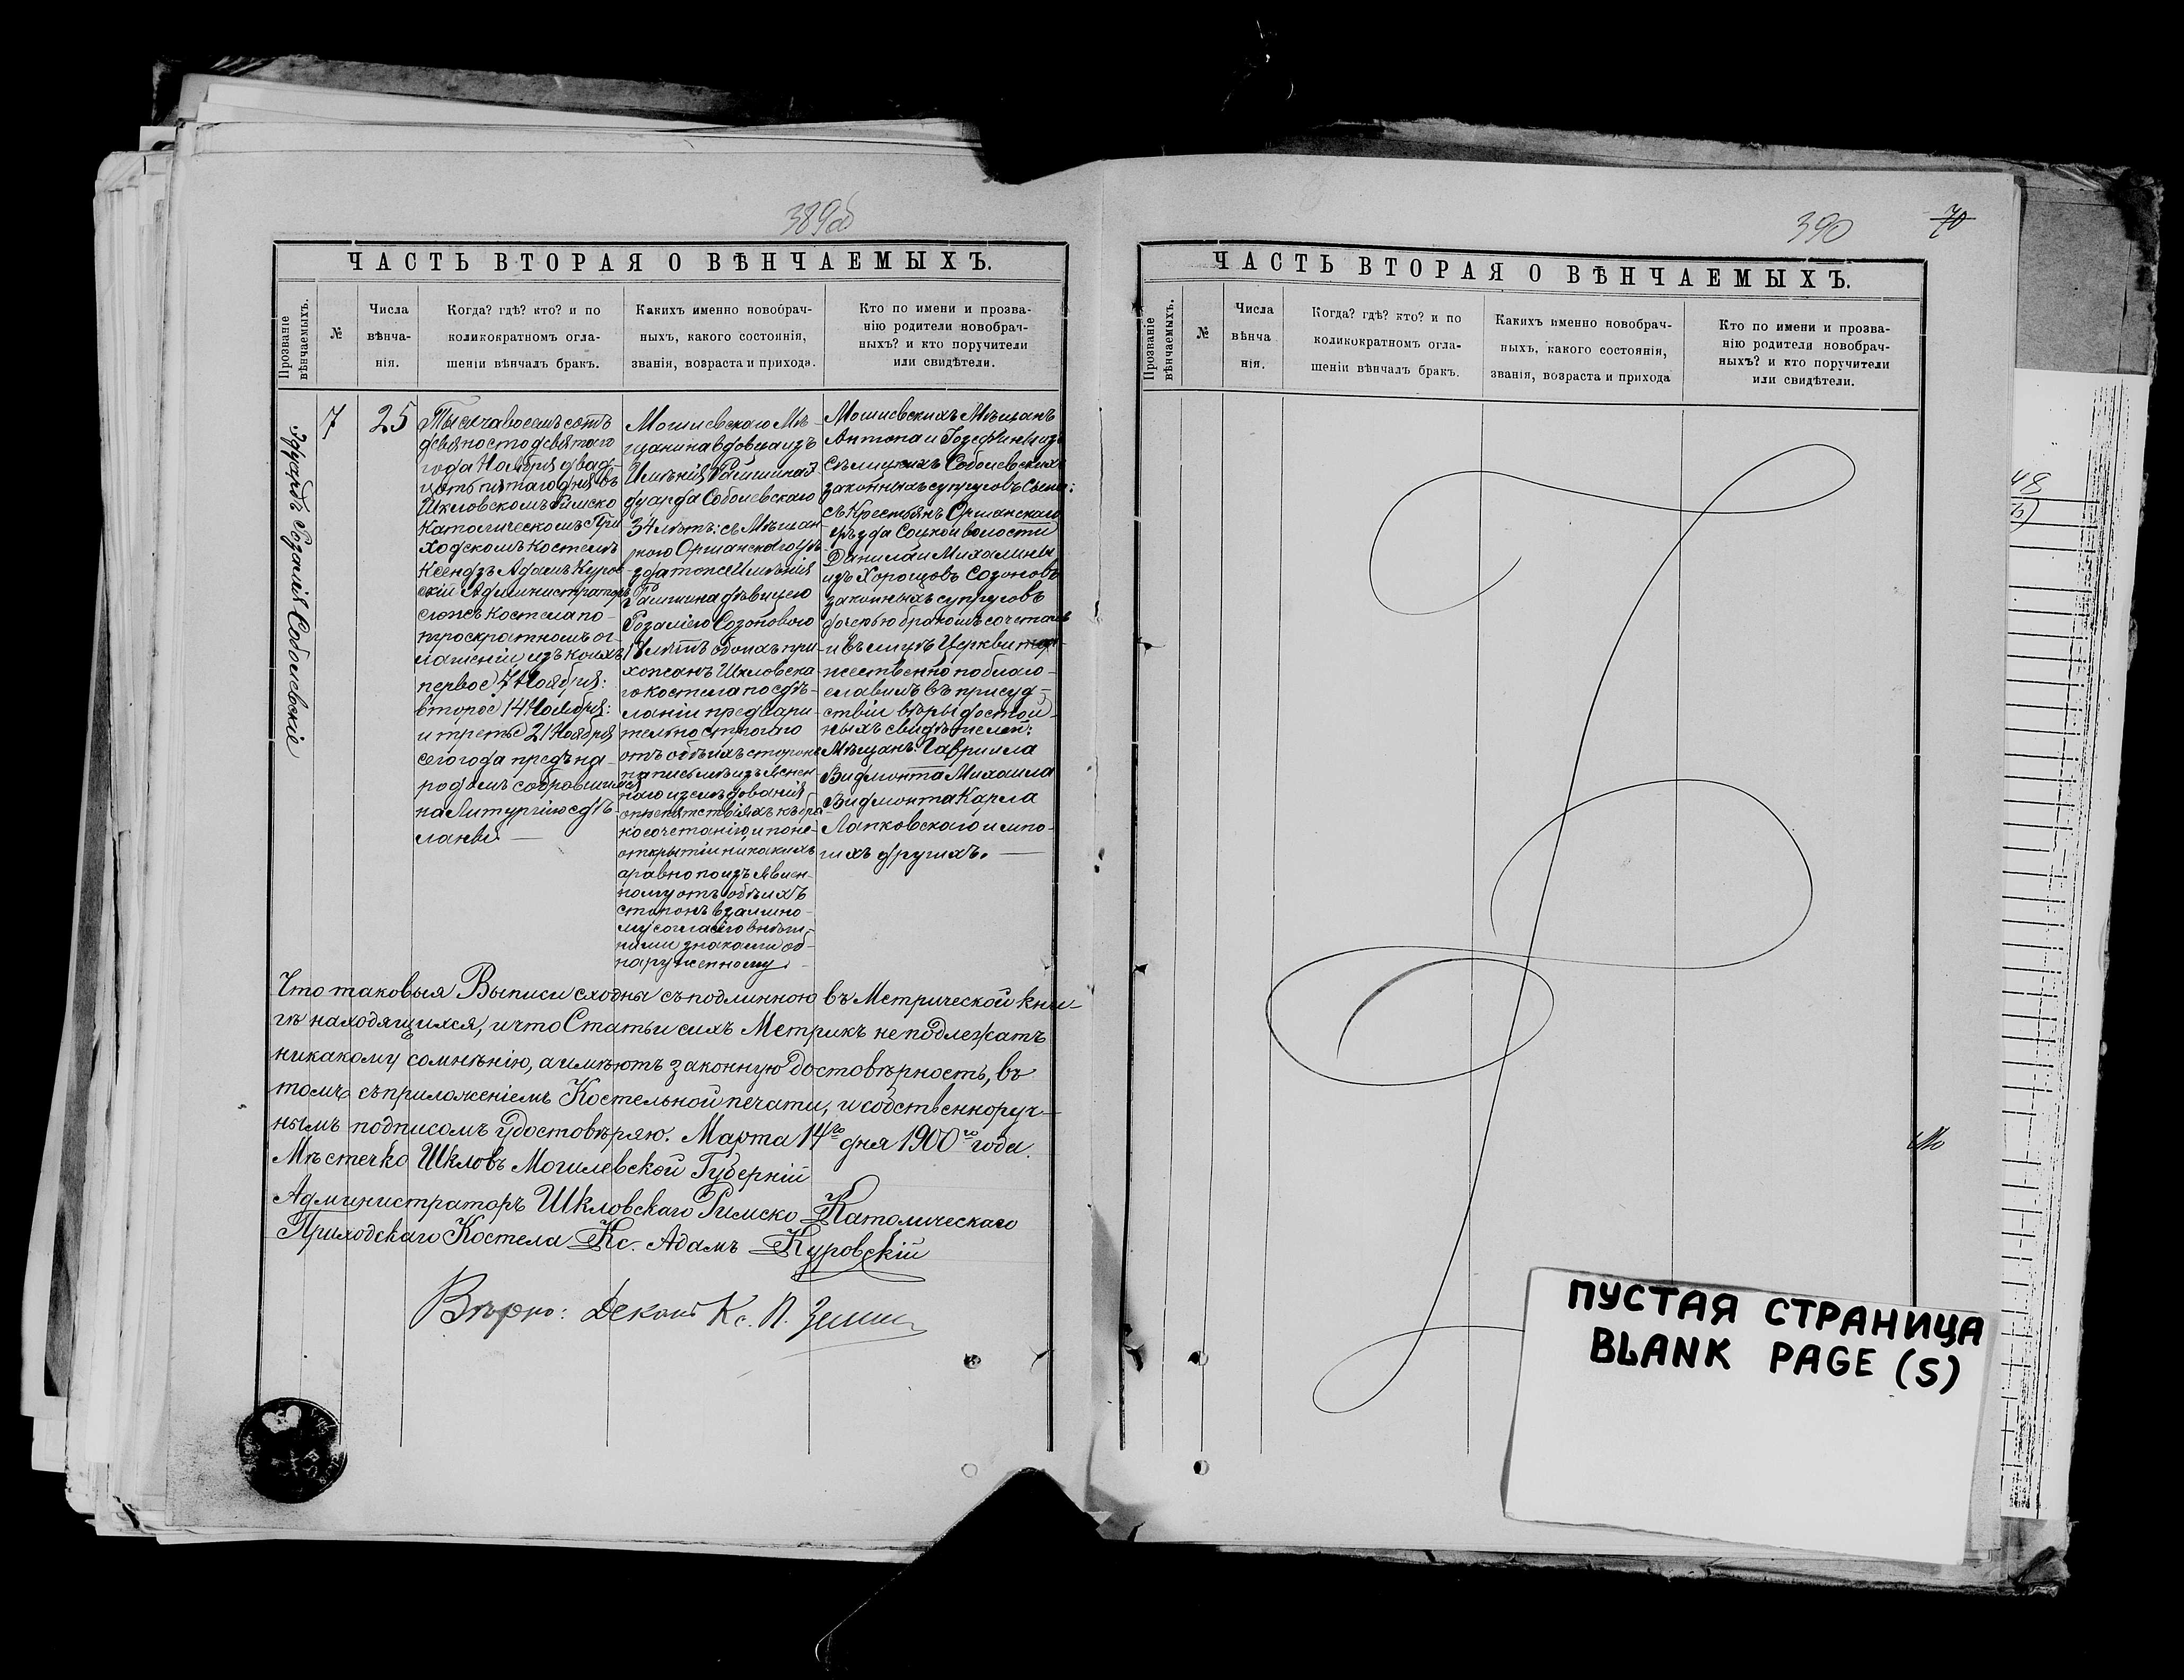 389об
ЧАСТЬ ВТОРАЯ О ВѢНЧАЕМЫХЪ.
Прозваніе вѣнчаемыхъ.
№
Числа
вѣнча-
нія.
Когда? гдѣ? кто? и по
коликократномъ огла-
шеніи вѣнчалъ бракъ.
Какихъ именно новобрач-
ныхъ, какого состоянія,
званія, возраста и прихода.
Кто по имени и прозва-
нію родители новобрач-
ныхъ? и кто поручители
или свидѣтели.
Эдуардъ Розалія Соболевскіе
7
25
Тысяча восемь сотъ
девяносто девятаго
года Ноября двад-
цать пятаго дня въ
Шкловскомъ Римско
Католическомъ При
ходскомъ Костелѣ
Ксендзъ Адамъ Куров-
скій Администраторъ
сегожъ Костела по
троекратномъ ог-
лашеніи изъ коихъ
первое 7 Ноября:
второе 14 Ноября:
и третье 21 Ноября
сего года предъ на-
родомъ собравшимся
на Литургію сдѣ-
ланы. —
Могилевскаго Мѣ-
щанина вдовца изъ
Имѣнія
дуарда Соболевскаго
34 лѣтъ: съ Мѣщан
кою Оршанскаго уѣ-
зда тоже Имѣнія
дѣвицею
Розаліею Созоновою
18 лѣтъ обоихъ при-
хожанъ Шкловска-
го костела по сдѣ-
ланіи предвари-
тельно строгаго
отъ обѣихъ сторонъ
на письмѣ изъяснен-
наго изслѣдованія
опрепятствіяхъ къ бра-
косочетанію, и поне-
открытіи никакихъ
а равно по изъявлен-
ному отъ обѣихъ
сторонъ взаимно-
му согласію внѣш-
ними знаками об-
наруженному. —
Могилевскихъ Мѣщанъ
Антона и Іозефины изъ
Соболевскихъ
законныхъ супруговъ сына:
съ Крестьянъ Оршанскаго
уѣзда волости
Данила и Михалины
изъ Созоновъ
законныхъ супруговъ
дочерью бракомъ сочеталъ
и въ лицѣ Церкви тор-
жественно поблаго-
славилъ въ присуд-
ствіи вѣры достой-
ныхъ свидѣтелей:
Мѣщанъ: Гавріила
Видмонта Михаила
Видмонта Карла
Лапковскаго и мно-
гихъ другихъ. —
Что таковыя Выписи сходны съ подлинною въ Метрической кни-
гѣ находящихся, и что Статьи сихъ Метрикъ не подлежатъ
никакому сомнѣнію, а имѣютъ законную достовѣрность, въ
томъ съ приложеніемъ Костельной печати, и собственноруч-
нымъ подписомъ удостовѣряю. Марта 14го дня 1900го года.
Мѣстечко Шкловъ Могилевской Губерній
Администраторъ Шкловскаго Римско Католическаго
Приходскаго Костела Кс. Адамъ Куровскій
Вѣрно: Деканъ Кс. П.
390
70
ЧАСТЬ ВТОРАЯ О ВѢНЧАЕМЫХЪ.
Прозваніе вѣнчаемыхъ.
№
Числа
вѣнча
нія.
Когда? гдѣ? кто? и по
коликократномъ огла-
шеніи вѣнчалъ бракъ.
Какихъ именно новобрач-
ныхъ, какого состоянія,
званія, возраста и прихода
Кто по имени и прозва-
нію родители новобрач-
ныхъ? и кто поручители
или свидѣтели.
48
ПУСТАЯ СТРАНИЦА
BLANK PAGE (S)